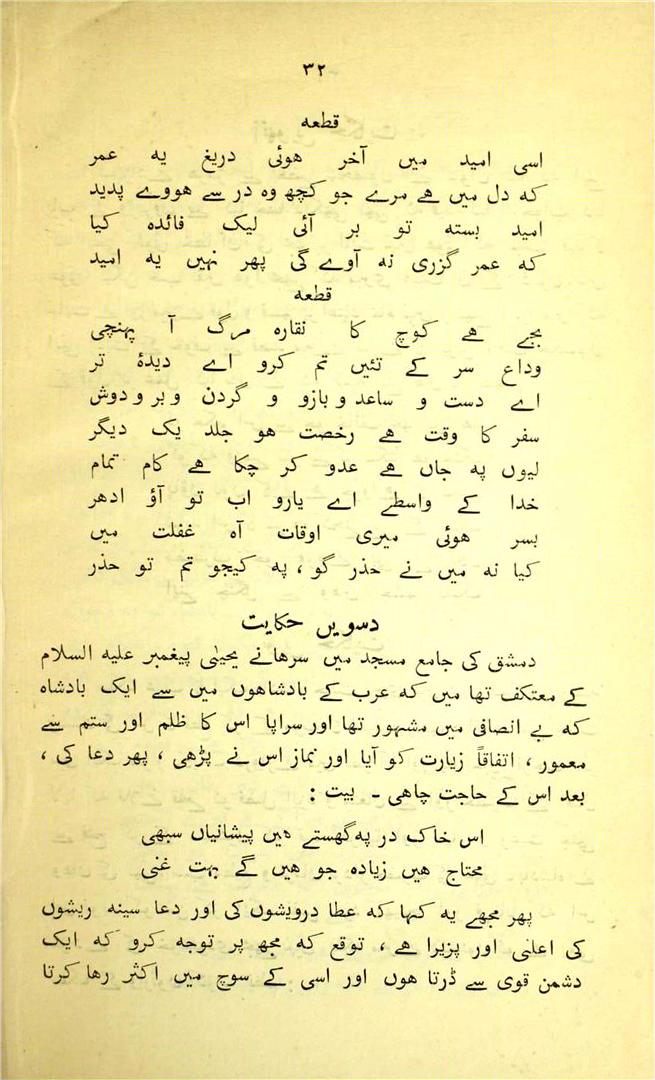 ۳۲
قطعه
اسی امید میں آخر ہوئی دریغ یہ عمر
کہ دل میں ہے مرے جو کچھ وہ در سے ہووے پدید
امید بستہ تو بر آئی لیک فائدہ کیا
کہ عمر گزری نہ آوے گی پھر نہیں یہ امید
قطعه
بجے ہے کوچ کا نقارہ مرگ آ پہنچی
وداع سر کے تئیں تم کرو اے دیدۂ تر
اے دست و ساعد و بازو و گردن و بر و دوش
سفر کا وقت ہے رخصت ہو جلد یک دیگر
لبوں پہ جاں ہے عدو کر چکا ہے کام تمام
خدا کے واسطے اے یارو اب تو آؤ ادھر
بسر ہوئی میری اوقات آہ غفلت میں
کیا نہ میں نے حذر گو ، پہ کیجو تم تو حذر
دسویں حکایت
دمشق کی جامع مسجد میں سرہانے یحییٰ پیغمبر علیہ السلام
کے معتکف تھا میں کہ عرب کے بادشاہوں میں سے ایک بادشاہ
کہ بے انصافی میں مشہور تھا اور سراپا اس کا ظلم اور ستم سے
معمور ، اتفاقاً زیارت کو آیا اور نماز اس نے پڑھی ، پھر دعا کی ،
بعد اس کے حاجت چاہی ۔ بیت :
اس خاک در پہ گھستے ہیں پیشانیاں سبھی
محتاج ہیں زیادہ جو ہیں گے بہت غنی
پھر مجھے یہ کہا کہ عطا درویشوں کی اور دعا سینہ ریشوں
کی اعلیٰ اور پزیرا ہے ، توقع کہ مجھ پر توجہ کرو کہ ایک
دشمن قوی سے ڈرتا ہوں اور اسی کے سوچ میں اکثر رہا کرتا